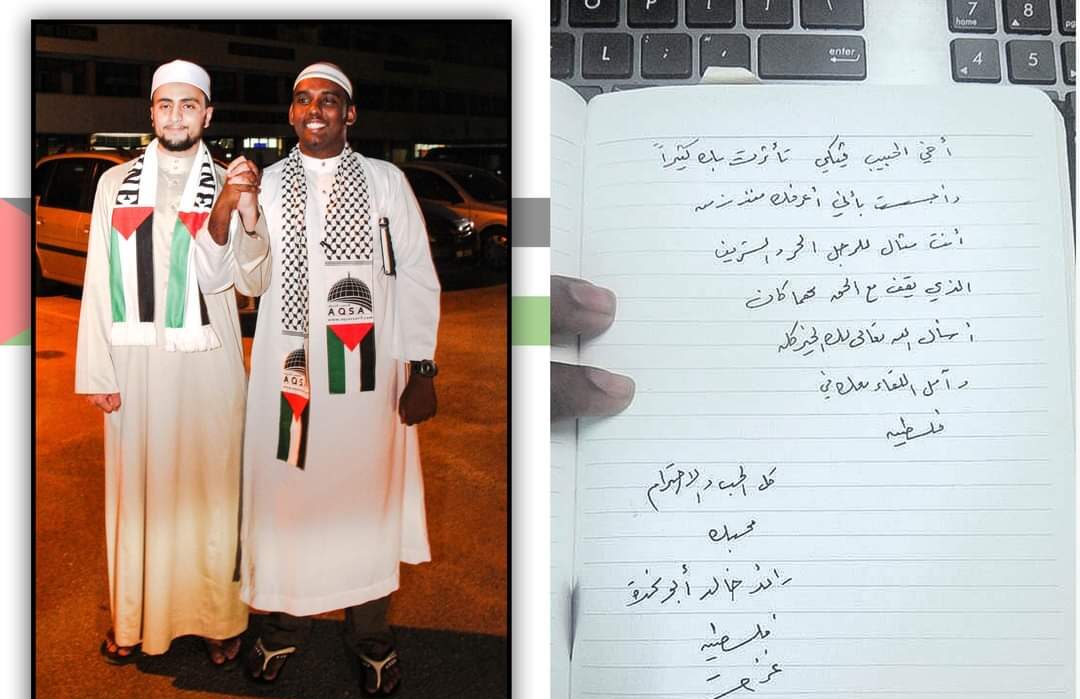 INE
INE
AQSA
AQS
O P [ ] \ 7 home 8
L ; ' enter 4 5
أخي الحبيب ڤيكي تأثرت بك كثيراً
وأحسست بأني أعرفك منذ زمن
أنت مثال للرجل الحر والشريف
الذي يقف مع الحق مهما كان
أسأل الله تعالى لك الخير كله
وآمل اللقاء معك في
فلسطين
كل الحب والاحترام
محبك
رائد خالد أبو
فلسطين
غزة